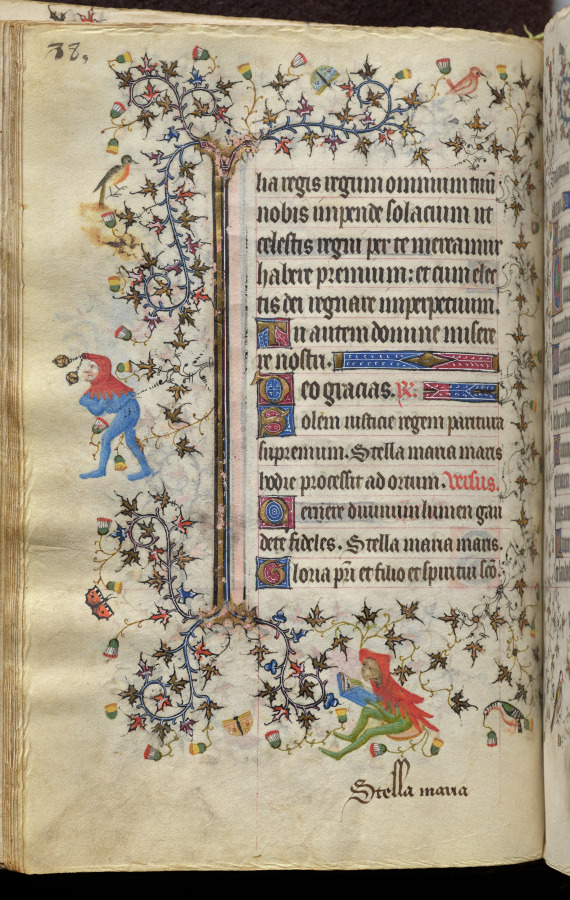 38,
lia regis regum omnium tuū
nobis impende solacium ut
celestis regni per te mereamur
habere premium: et cum elec
tis dei regnare imperpetuum.
Tu autem domine misere
re nostri.
Deo gracias. ꝶ.
Solem iusticie regem paritura
supremum. Stella maria maris
hodie processit ad ortum. Versus.
Cernere diuinum lumen gau
dete fideles. Stella maria maris.
Gloria pr̄i et filio et spiritui sc̄o.
Stella maria